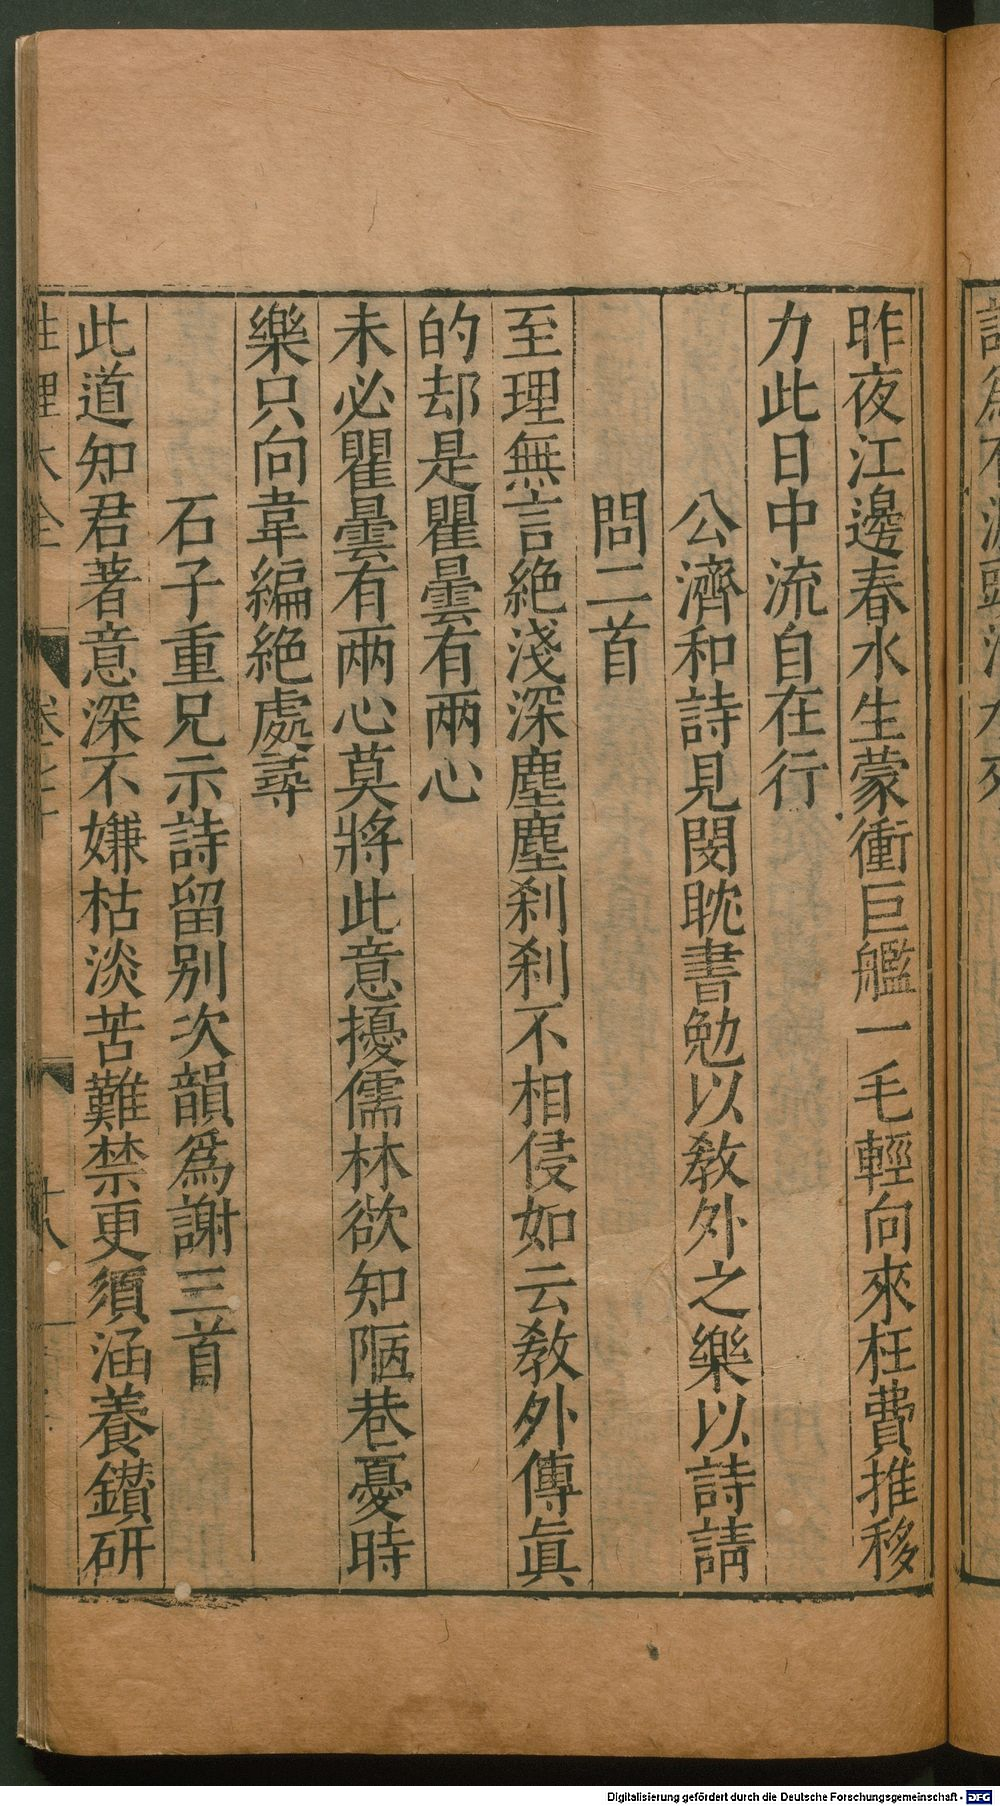 昨夜江邊春水生蒙衝巨艦一毛輕向來枉費推移
力此日中流自在行
公濟和詩見閔耽書勉以敎外之樂以詩請
問二首
至理無言絶淺深塵塵刹刹不相侵如云敎外傳眞
的却是瞿曇有兩心
未必瞿曇有兩心莫將此意擾儒林欲知陋巷憂時
樂只向韋編絶處尋
石子重兄示詩留別次韻爲謝三首
此道知君著意深不嫌枯淡苦難禁更須涵養鑚研
性理大全 卷之七十 十八
Digitalisierung gefördert durch die Deutsche Forschungsgemeinschaft - DFG